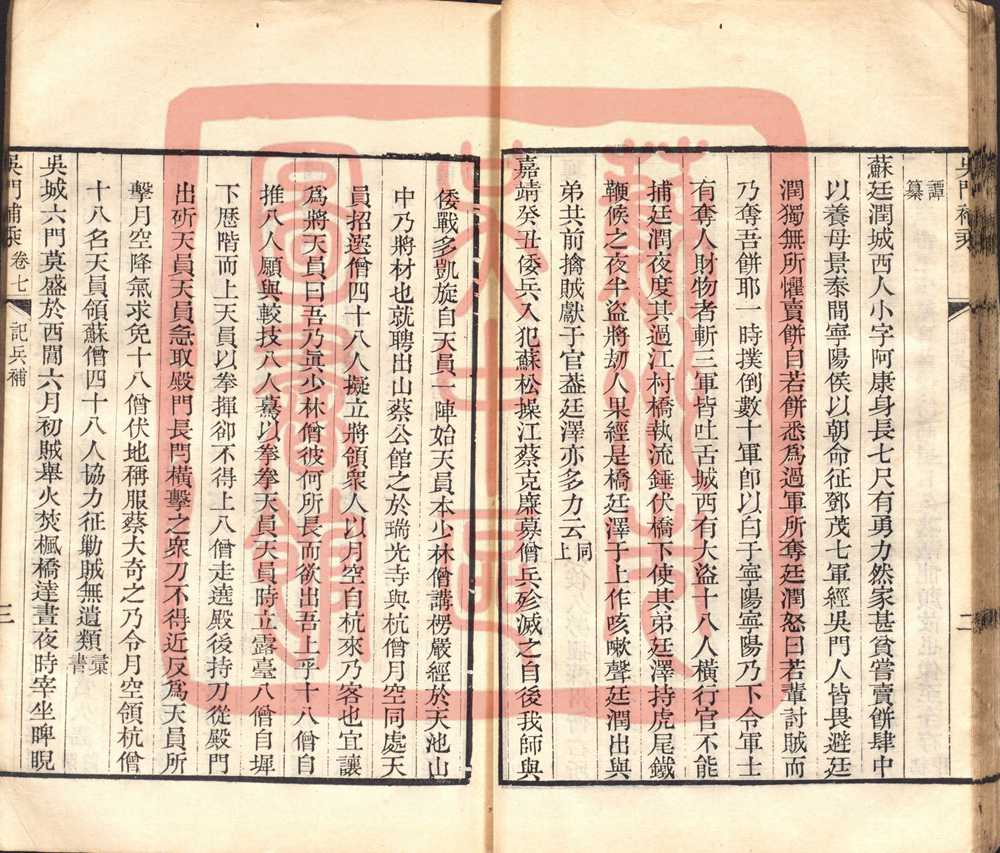 吳門補乘
譚
纂
蘇廷潤城西人小字阿康身長七尺有勇力然家甚貧嘗賣餅肆中
以養母景泰間寧陽侯以朝命征鄧茂七軍經吳門人皆畏避廷
潤獨無所懼賣餅自若餅悉為過軍所奪廷潤怒曰若輩討賊而
乃奪吾餅耶一時撲倒數十軍卽以白于寧陽寧陽乃下令軍士
有奪人財物者斬三軍皆吐舌城西有大盜十八人橫行官不能
捕廷潤夜度其過江村橋執流錘伏橋下使其弟廷澤持虎尾鐵
鞭候之夜半盜將刼人果經是橋廷澤于上作咳嗽聲廷潤出與
弟共前擒賊獻于官葢廷澤亦多力云同上
嘉靖癸丑倭兵入犯蘇松操江蔡克廉募僧兵殄滅之自後我師與
二
倭戰多凱旋自天員一陣始天員本少林僧講楞嚴經於天池山
中乃將材也就聘出山蔡公館之於瑞光寺與杭僧月空同處天
員招選僧四十八人擬立將領衆人以月空自杭來乃客也宜讓
爲將天員曰吾乃眞少林僧彼何所長而欲出吾上乎十八僧自
推八人願與較技八人驀以拳拳天員天員時立露臺八僧自墀
下歷階而上天員以拳揮卻不得上八僧走遶殿後持刀從殿門
出斫天員天員急取殿門長閂橫擊之衆刀不得近反爲天員所
擊月空降氣求免十八僧伏地稱服蔡大奇之乃令月空領杭僧
十八名天員領蘇僧四十八人協力征勦賊無遺類彙書
吳城六門莫盛於西閶六月初賊舉火焚楓橋達晝夜時宰坐睥睨
吳門補乘 卷七 記兵補
三